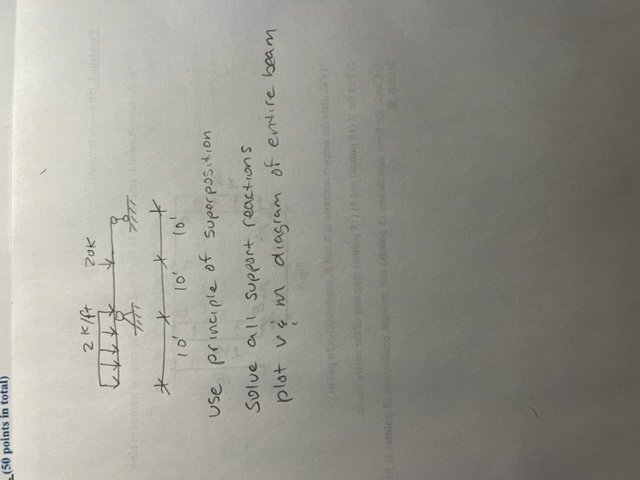 (50 points in total)
2 K/ft 20K
10' 10' 10'
use principle of superposition
Solve all support reactions
plot v & m diagram of entire beam